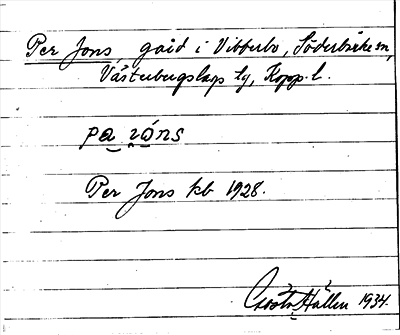 Per Jons, gård i Vibberbo, Söderbärke sn,
Västerbergslags tg, Kopp. l.
Per Jons kb 1928.
Gösta Hallén 1934.